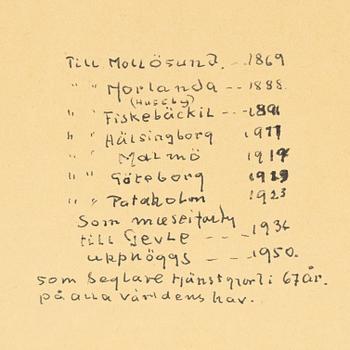 Till Mollösund. -- 1869
" " Morlanda -- 1888.
(Huseby)
" " Fiskebäckil -- 1891
" " Hälsingborg 1911
" " Malmö 1914
" " Göteborg 1919
" " Pataholm 1923
Som museifartyg
till Gevle -- 1936
upphöggs -- 1950.
som Seglare tjänstgjort i 67 år.
på alla världens hav.